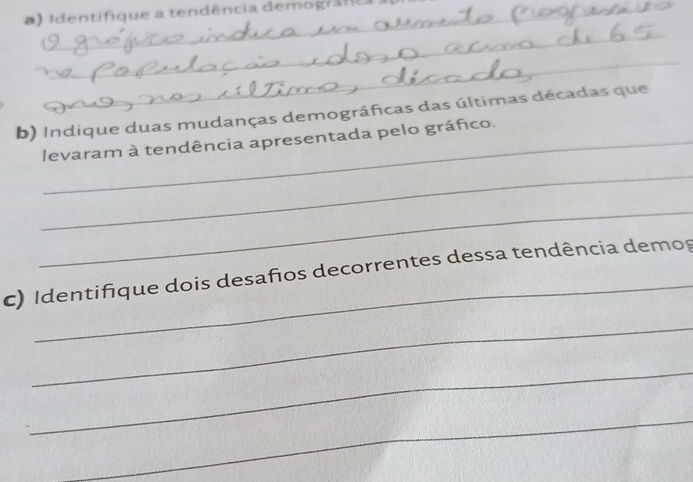 a) Identifique a tendência demográfica
O gráfico indica um aumento progressivo
na população idosa acima de 65
nas últimas décadas
b) Indique duas mudanças demográficas das últimas décadas que
levaram à tendência apresentada pelo gráfico.
c) Identifique dois desafios decorrentes dessa tendência demog